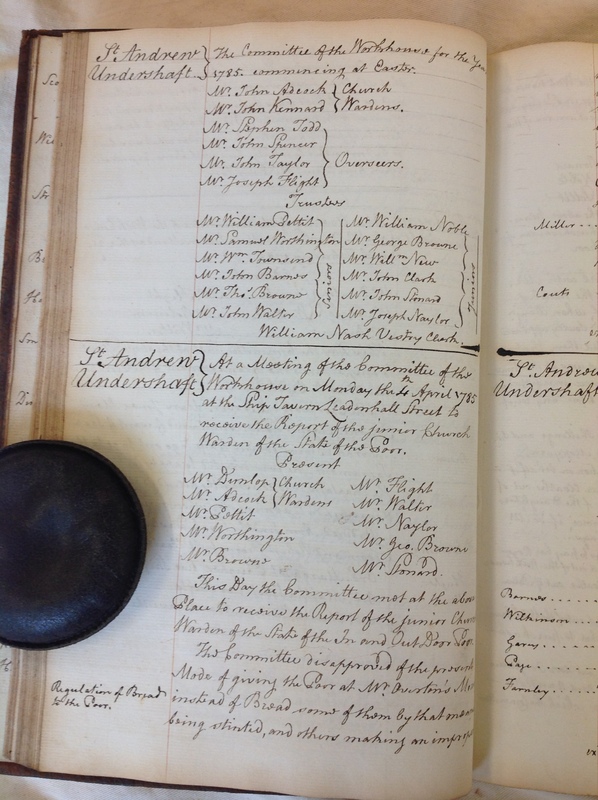 St. Andrew
Undershaft
The Committee of the Workhouse for the
1785. commencing at Easter.
Mr. John Adcock
Mr. John Kennard
Church
Wardens.
Mr. Stephen Todd
Mr. John Spencer
Mr. John Taylor
Mr. Joseph Flight
Overseers.
Trustees
Mr. William Pettit
Mr. Samuel Worthington
Mr. Wm. Townsend
Mr. John Barnes
Mr. Thos. Browne
Mr. John Walter
Seniors
Mr. William Noble
Mr. George Browne
Mr. Willm. New
Mr. John Clark
Mr. John Stonard
Mr. Joseph Naylor
Juniors
William Nash Vestry Clerk.
St. Andrew
Undershaft
At a Meeting of the Committee of the
Workhouse on Monday the 4th April 1785
at the Ship Tavern Leadenhall Street to
receive the Report of the junior Church
Warden of the State of the Poor.
Present
Mr. Dunlop
Mr. Adcock
Church
Wardens
Mr. Pettit
Mr. Worthington
Mr. Browne
Mr. Flight
Mr. Walter
Mr. Naylor
Mr. Geo. Browne
Mr. Stonard.
This Day the Committee met at the above
Place to receive the Report of the junior
Warden of the State of the In and Out Door Poor
The Committee disapproved of the present
Mode of giving the Poor at Mr. Overton's
instead of Bread some of them by that means
being stinted, and others making an
Regulation of Bread
to the Poor.
Miller
Couts
St. Andrew
Undershaft
Barnes
Wilkinson
Page
Farnley